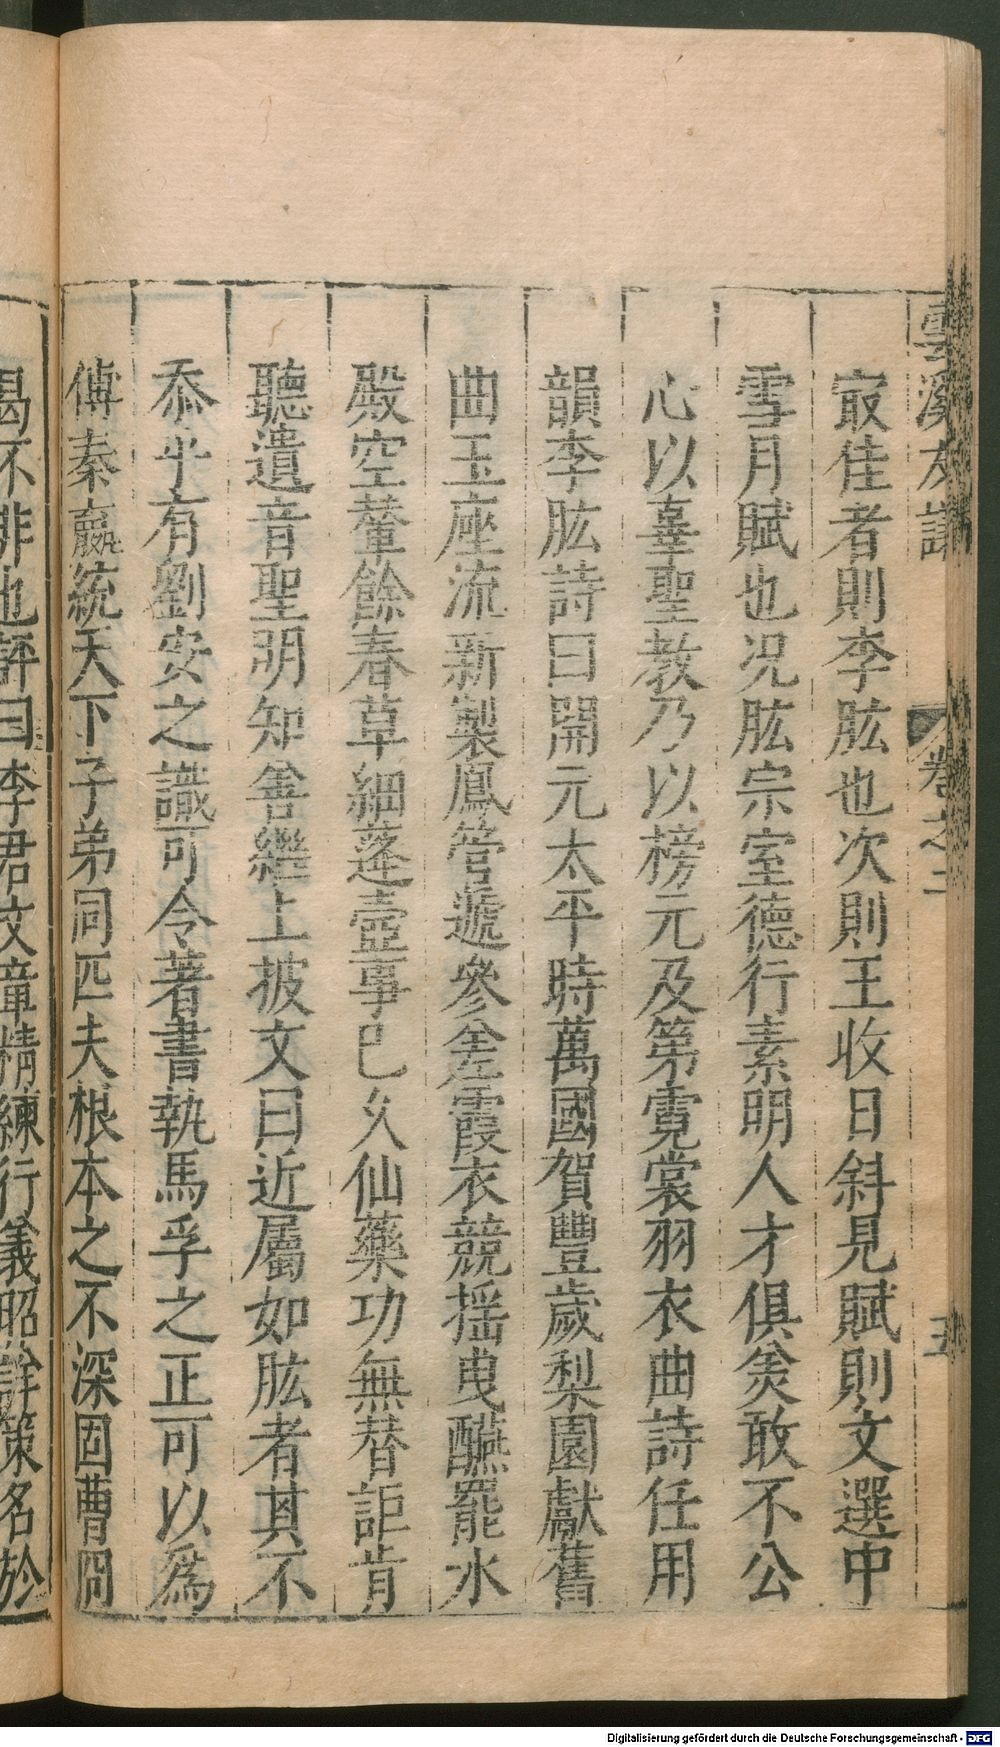 雲溪友議 卷之二 五
㝡佳者則李肱也次則王收日斜見賦則文選中
雪月賦也况肱宗室德行素明人才俱美敢不公
心以辜聖教乃以榜元及第霓裳羽衣曲詩任用
韻李肱詩曰開元太平時萬國賀豐歲梨園獻舊
曲玉座流新製鳳管遞參差霞衣競揺曳醼罷水
殿空輦餘春草細蓬壼事巳乆仙藥功無替詎肯
聽遺音聖明知善繼上披文曰近屬如肱者其不
忝乎有劉安之識可令著書執馬孚之正可以爲
傅秦嬴統天下子弟同匹夫根本之不深固曹冏
曷不非也評曰李君文章精練行義昭詳策名於
Digitalisierung gefördert durch die Deutsche Forschungsgemeinschaft - DFG